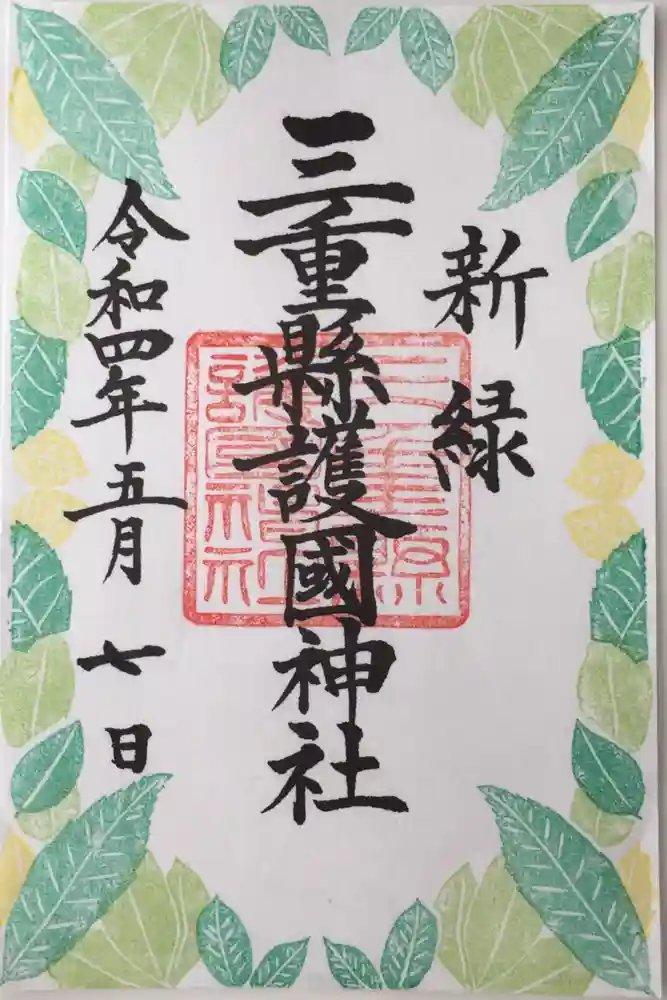 新緑
三重縣護國神社
令和四年五月七日